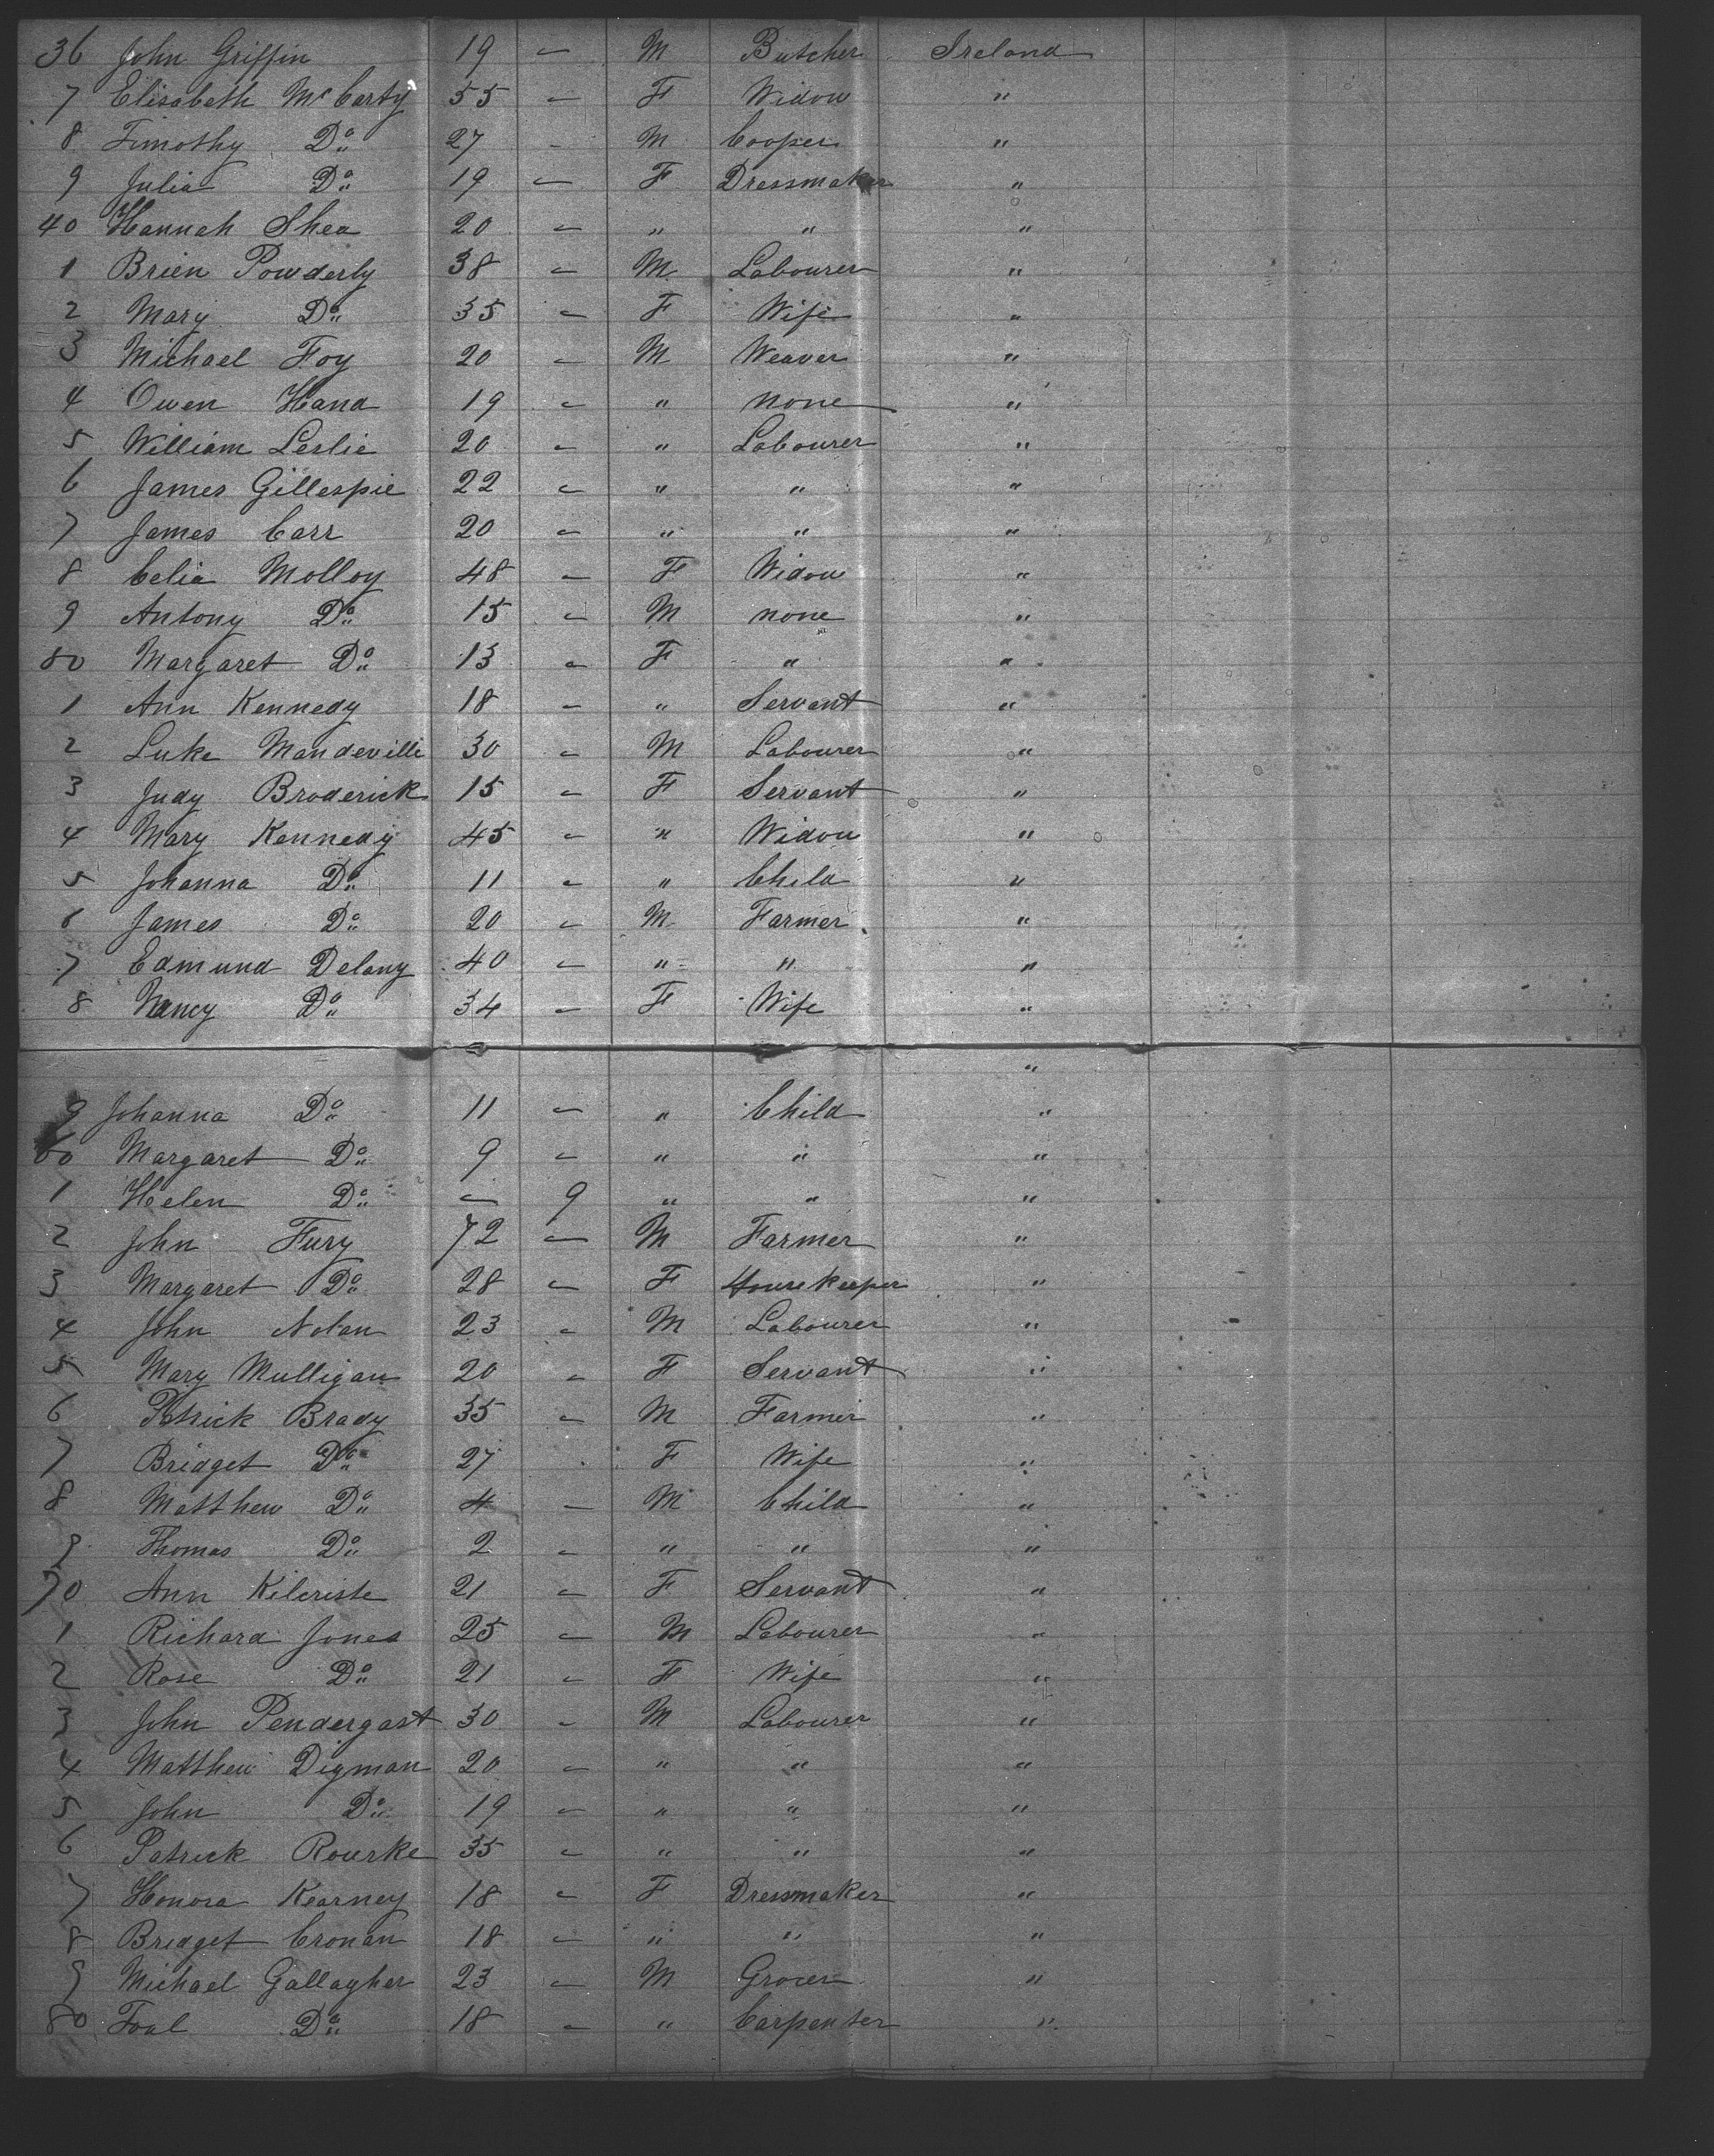 36 John Griffin 19 — M Butcher Ireland
7 Elisabeth McCarty 55 — F Widow "
8 Timothy Do 27 - M Cooper "
9 Julia Do 19 — F Dressmaker "
40 Hannah Shea 20 — " " "
1 Brien Powderly 38 — M Labourer "
2 Mary Do 35 — F Wife "
3 Michael Foy 20 — M Weaver "
4 Owen Hand 19 — " none "
5 William Leslie 20 — " Labourer "
6 James Gillespie 22 — " " "
7 James Carr 20 — " " "
8 Celia Molloy 48 — F Widow "
9 Antony Do 15 — M none "
50 Margaret Do 13 — F " "
1 Ann Kennedy 18 — " Servant "
2 Luke Mandeville 30 — M Labourer "
3 Judy Broderick 15 — F Servant "
4 Mary Kennedy 45 — " Widow "
5 Johanna Do 11 — " Child "
6 James Do 20 — M Farmer "
7 Edmund Delany 40 — " " "
8 Nancy Do 34 — F Wife "
"
9 Johanna Do 11 — " Child "
60 Margaret Do 9 — " " "
1 Helen Do — 9 " " "
2 John Fury 72 — M Farmer "
3 Margaret Do 28 — F Housekeeper "
4 John Nolan 23 — M Labourer "
5 Mary Mulligan 20 — F Servant "
6 Patrick Brady 35 — M Farmer "
7 Bridget Do 27 F Wife "
8 Matthew Do 4 — M Child "
9 Thomas Do 2 — " " "
70 Ann Kilcriste 21 — F Servant "
1 Richard Jones 25 — M Labourer "
2 Rose Do 21 — F Wife "
3 John Pendergast 30 — M Labourer "
4 Matthew Digman 20 — " " "
5 John Do 19 — " " "
6 Patrick Rourke 35 — " " "
7 Honora Kearney 18 — F Dressmaker "
8 Bridget Cronan 18 — " " "
9 Michael Gallagher 23 — M Grocer "
80 Foal Do 18 — " Carpenter "